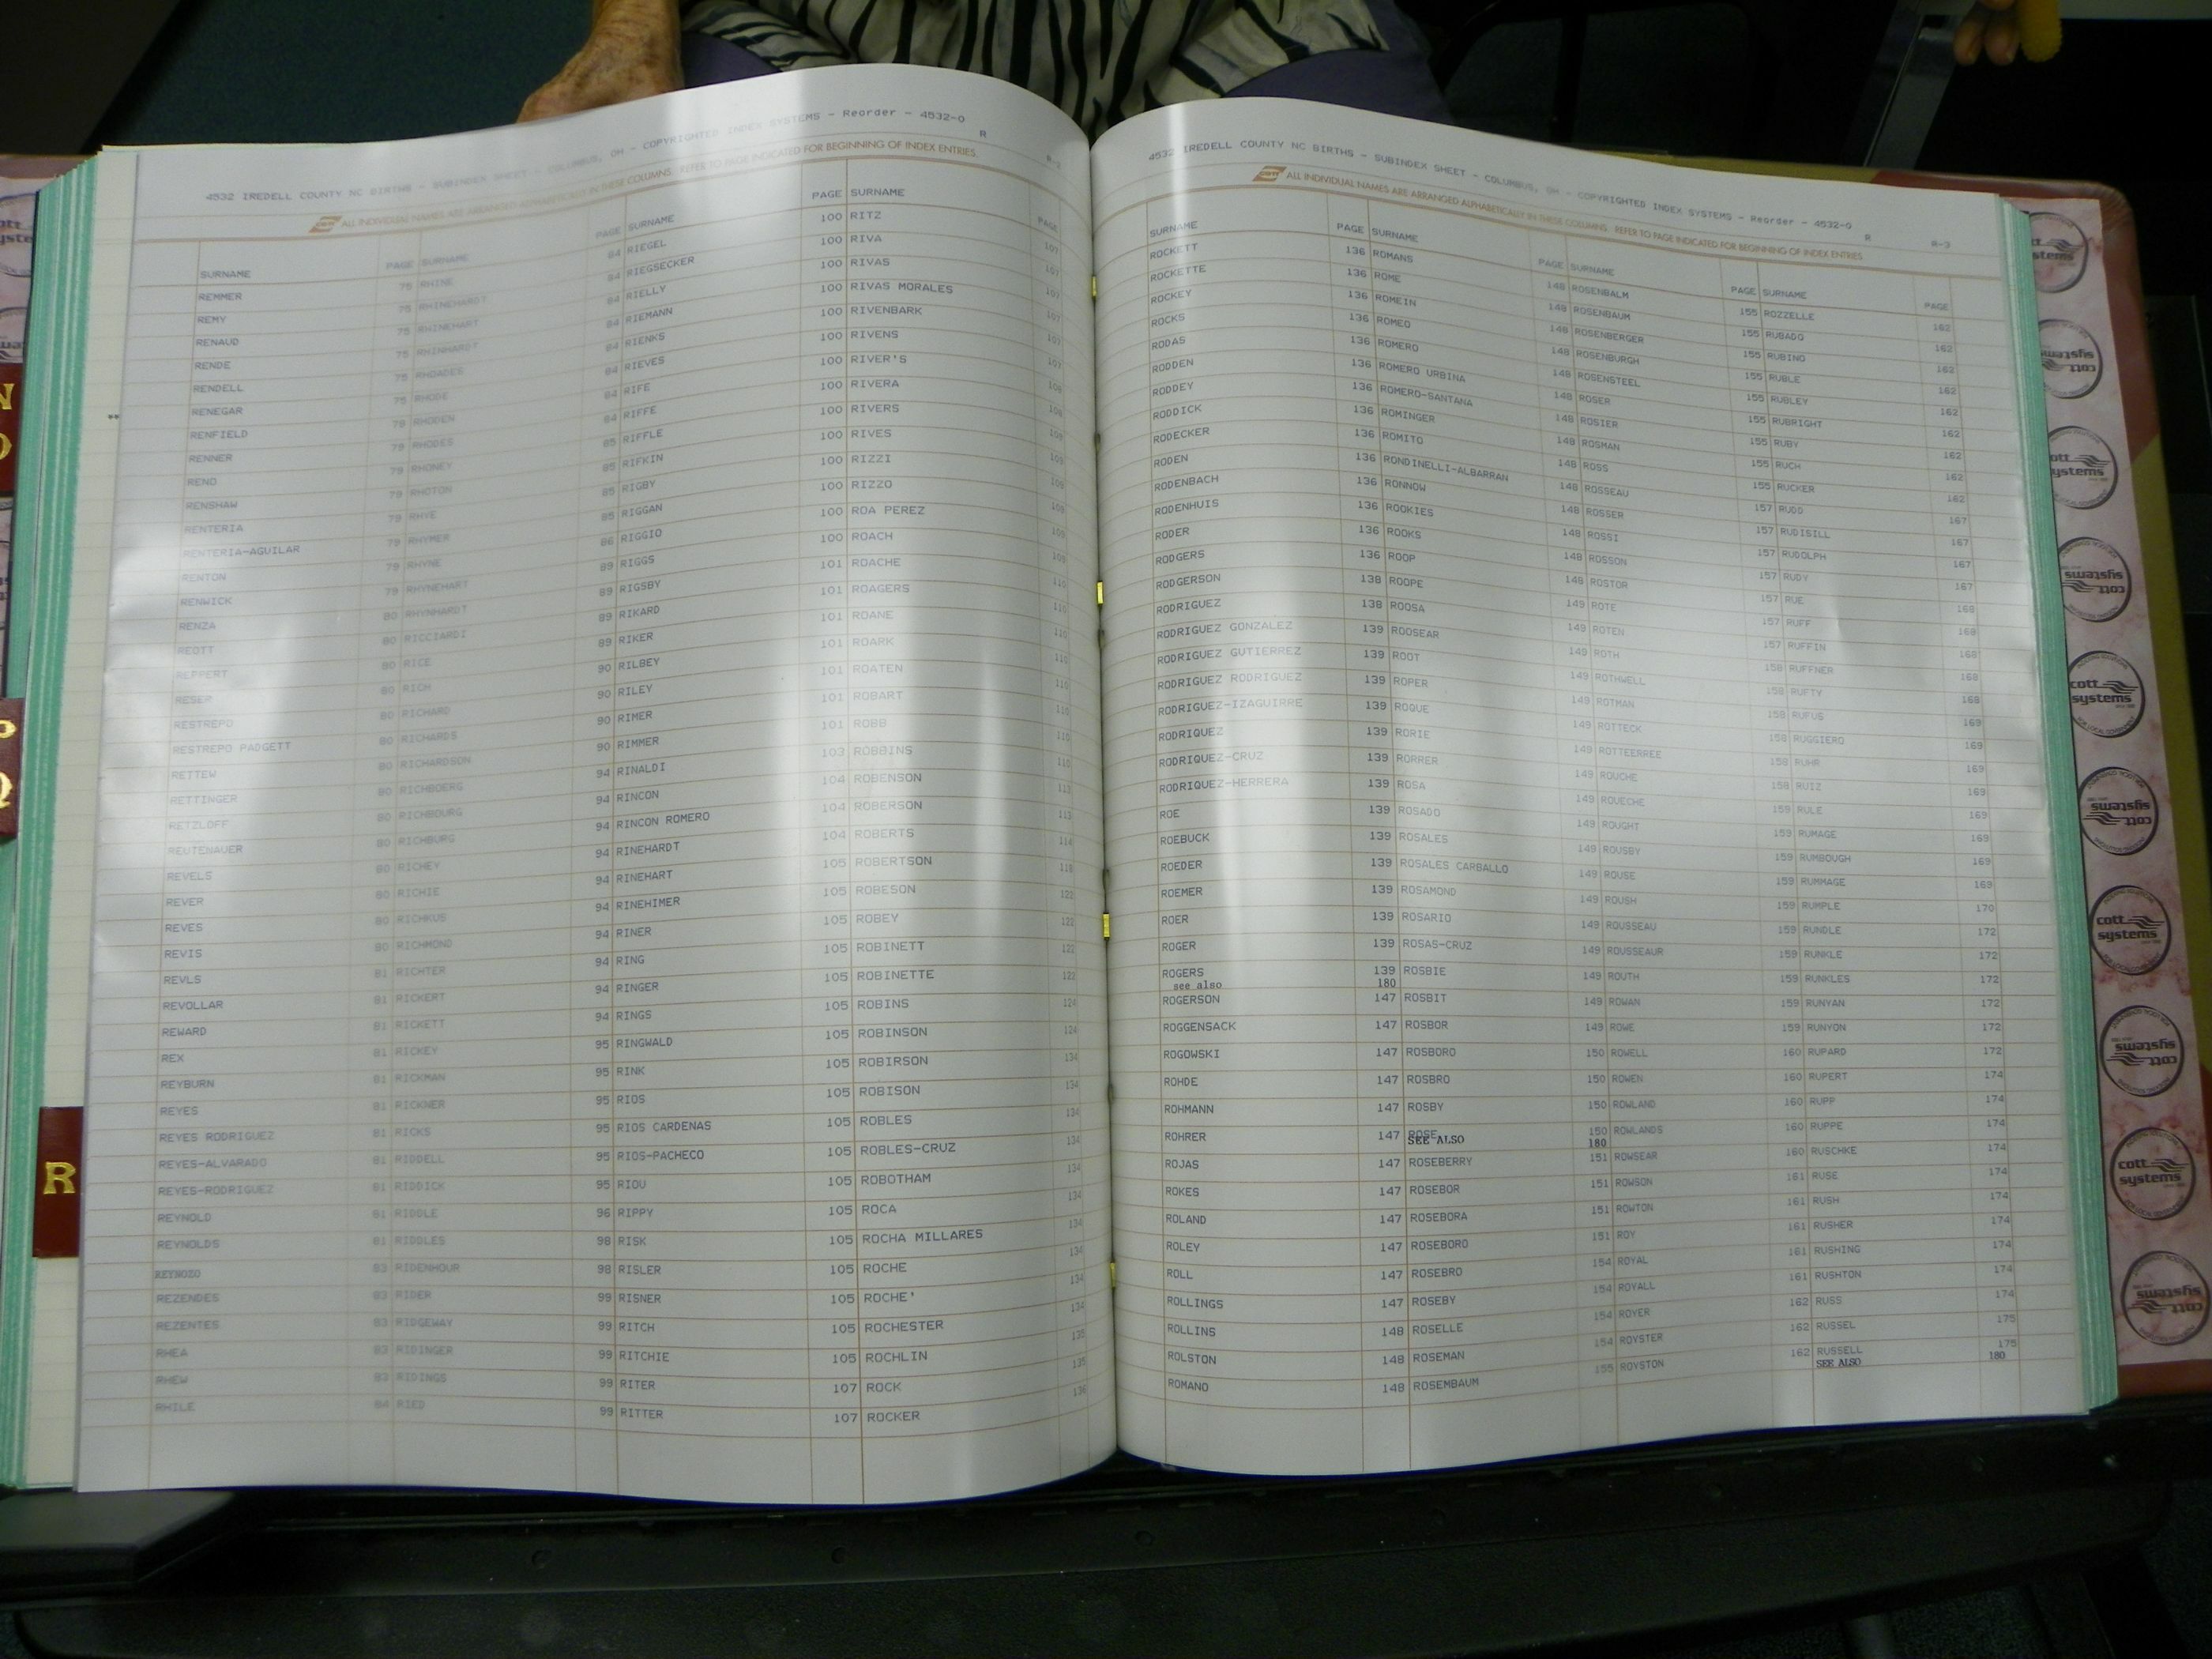 4532 IREDELL COUNTY NC BIRTHS - SUBINDEX SHEET - COLUMBUS, OH - COPYRIGHTED INDEX SYSTEMS - Reorder - 4532-0
R
R-2
cott ALL INDIVIDUAL NAMES ARE ARRANGED ALPHABETICALLY IN THESE COLUMNS. REFER TO PAGE INDICATED FOR BEGINNING OF INDEX ENTRIES.
SURNAME
REMMER
REMY
RENAUD
RENDE
RENDELL
RENEGAR
RENFIELD
RENNER
RENO
RENSHAW
RENTERIA
RENTERIA-AGUILAR
RENTON
RENWICK
RENZA
REOTT
REPPERT
RESER
RESTREPO
RESTREPO PADGETT
RETTEW
RETTINGER
RETZLOFF
REUTENAUER
REVELS
REVER
REVES
REVIS
REVLS
REVOLLAR
REWARD
REX
REYBURN
REYES
REYES RODRIGUEZ
REYES-ALVARADO
REYES-RODRIGUEZ
REYNOLD
REYNOLDS
REYNOZO
REZENDES
REZENTES
RHEA
RHEW
RHILE
PAGE SURNAME
75 RHINE
75 RHINEHARDT
75 RHINEHART
75 RHINHARDT
75 RHOADES
75 RHODE
79 RHODEN
79 RHODES
79 RHONEY
79 RHOTON
79 RHYE
79 RHYMER
79 RHYNE
79 RHYNEHART
80 RHYNHARDT
80 RICCIARDI
80 RICE
80 RICH
80 RICHARD
80 RICHARDS
80 RICHARDSON
80 RICHBOERG
80 RICHBOURG
80 RICHBURG
80 RICHEY
80 RICHIE
80 RICHKUS
80 RICHMOND
81 RICHTER
81 RICKERT
81 RICKETT
81 RICKEY
81 RICKMAN
81 RICKNER
81 RICKS
81 RIDDELL
81 RIDDICK
81 RIDDLE
81 RIDDLES
83 RIDENHOUR
83 RIDER
83 RIDGEWAY
83 RIDINGER
83 RIDINGS
84 RIED
PAGE SURNAME
84 RIEGEL
84 RIEGSECKER
84 RIELLY
84 RIEMANN
84 RIENKS
84 RIEVES
84 RIFE
84 RIFFE
85 RIFFLE
85 RIFKIN
85 RIGBY
85 RIGGAN
86 RIGGIO
89 RIGGS
89 RIGSBY
89 RIKARD
89 RIKER
90 RILBEY
90 RILEY
90 RIMER
90 RIMMER
94 RINALDI
94 RINCON
94 RINCON ROMERO
94 RINEHARDT
94 RINEHART
94 RINEHIMER
94 RINER
94 RING
94 RINGER
94 RINGS
95 RINGWALD
95 RINK
95 RIOS
95 RIOS CARDENAS
95 RIOS-PACHECO
95 RIOU
96 RIPPY
98 RISK
98 RISLER
99 RISNER
99 RITCH
99 RITCHIE
99 RITER
99 RITTER
PAGE SURNAME
100 RITZ
100 RIVA
100 RIVAS
100 RIVAS MORALES
100 RIVENBARK
100 RIVENS
100 RIVER'S
100 RIVERA
100 RIVERS
100 RIVES
100 RIZZI
100 RIZZO
100 ROA PEREZ
100 ROACH
101 ROACHE
101 ROAGERS
101 ROANE
101 ROARK
101 ROATEN
101 ROBART
101 ROBB
103 ROBBINS
104 ROBENSON
104 ROBERSON
104 ROBERTS
105 ROBERTSON
105 ROBESON
105 ROBEY
105 ROBINETT
105 ROBINETTE
105 ROBINS
105 ROBINSON
105 ROBIRSON
105 ROBISON
105 ROBLES
105 ROBLES-CRUZ
105 ROBOTHAM
105 ROCA
105 ROCHA MILLARES
105 ROCHE
105 ROCHE'
105 ROCHESTER
105 ROCHLIN
107 ROCK
107 ROCKER
PAGE
107
107
107
107
4532 IREDELL COUNTY NC BIRTHS - SUBINDEX SHEET - COLUMBUS, OH - COPYRIGHTED INDEX SYSTEMS - Reorder - 4532-0
R
R-3
cott ALL INDIVIDUAL NAMES ARE ARRANGED ALPHABETICALLY IN THESE COLUMNS. REFER TO PAGE INDICATED FOR BEGINNING OF INDEX ENTRIES.
SURNAME
ROCKETT
ROCKETTE
ROCKEY
ROCKS
RODAS
RODDEN
RODDEY
RODDICK
RODECKER
RODEN
RODENBACH
RODENHUIS
RODER
RODGERS
RODGERSON
RODRIGUEZ
RODRIGUEZ GONZALEZ
RODRIGUEZ GUTIERREZ
RODRIGUEZ RODRIGUEZ
RODRIGUEZ-IZAGUIRRE
RODRIQUEZ
RODRIQUEZ-CRUZ
RODRIQUEZ-HERRERA
ROE
ROEBUCK
ROEDER
ROEMER
ROER
ROGER
ROGERS
see also
ROGERSON
ROGGENSACK
ROGOWSKI
ROHDE
ROHMANN
ROHRER
ROJAS
ROKES
ROLAND
ROLEY
ROLL
ROLLINGS
ROLLINS
ROLSTON
ROMANO
PAGE SURNAME
136 ROMANS
136 ROME
136 ROMEIN
136 ROMEO
136 ROMERO
136 ROMERO URBINA
136 ROMERO-SANTANA
136 ROMINGER
136 ROMITO
136 RONDINELLI-ALBARRAN
136 RONNOW
136 ROOKIES
136 ROOKS
136 ROOP
138 ROOPE
138 ROOSA
139 ROOSEAR
139 ROOT
139 ROPER
139 ROQUE
139 RORIE
139 RORRER
139 ROSA
139 ROSADO
139 ROSALES
139 ROSALES CARBALLO
139 ROSAMOND
139 ROSARIO
139 ROSAS-CRUZ
139 ROSBIE
180
147 ROSBIT
147 ROSBOR
147 ROSBORO
147 ROSBRO
147 ROSBY
147 ROSE
SEE ALSO
147 ROSEBERRY
147 ROSEBOR
147 ROSEBORA
147 ROSEBORO
147 ROSEBRO
147 ROSEBY
148 ROSELLE
148 ROSEMAN
148 ROSEMBAUM
PAGE SURNAME
148 ROSENBALM
148 ROSENBAUM
148 ROSENBERGER
148 ROSENBURGH
148 ROSENSTEEL
148 ROSER
148 ROSIER
148 ROSMAN
148 ROSS
148 ROSSEAU
148 ROSSER
148 ROSSI
148 ROSSON
148 ROSTOR
149 ROTE
149 ROTEN
149 ROTH
149 ROTHWELL
149 ROTMAN
149 ROTTECK
149 ROTTEERREE
149 ROUCHE
149 ROUECHE
149 ROUGHT
149 ROUSBY
149 ROUSE
149 ROUSH
149 ROUSSEAU
149 ROUSSEAUR
149 ROUTH
149 ROWAN
149 ROWE
150 ROWELL
150 ROWEN
150 ROWLAND
150 ROWLANDS
180
151 ROWSEAR
151 ROWSON
151 ROWTON
151 ROY
154 ROYAL
154 ROYALL
154 ROYER
154 ROYSTER
155 ROYSTON
PAGE SURNAME
155 ROZZELLE
155 RUBADO
155 RUBINO
155 RUBLE
155 RUBLEY
155 RUBRIGHT
155 RUBY
155 RUCH
155 RUCKER
157 RUDD
157 RUDISILL
157 RUDOLPH
157 RUDY
157 RUE
157 RUFF
157 RUFFIN
158 RUFFNER
158 RUFTY
158 RUFUS
158 RUGGIERO
158 RUHR
158 RUIZ
159 RULE
159 RUMAGE
159 RUMBOUGH
159 RUMMAGE
159 RUMPLE
159 RUNDLE
159 RUNKLE
159 RUNKLES
159 RUNYAN
159 RUNYON
160 RUPARD
160 RUPERT
160 RUPP
160 RUPPE
160 RUSCHKE
161 RUSE
161 RUSH
161 RUSHER
161 RUSHING
161 RUSHTON
162 RUSS
162 RUSSEL
162 RUSSELL
SEE ALSO
PAGE
162
162
162
162
162
162
162
167
167
167
167
168
168
168
168
168
169
169
169
169
169
169
169
170
172
172
172
172
172
172
174
174
174
174
174
174
174
174
174
174
175
175
180
R
cott systems